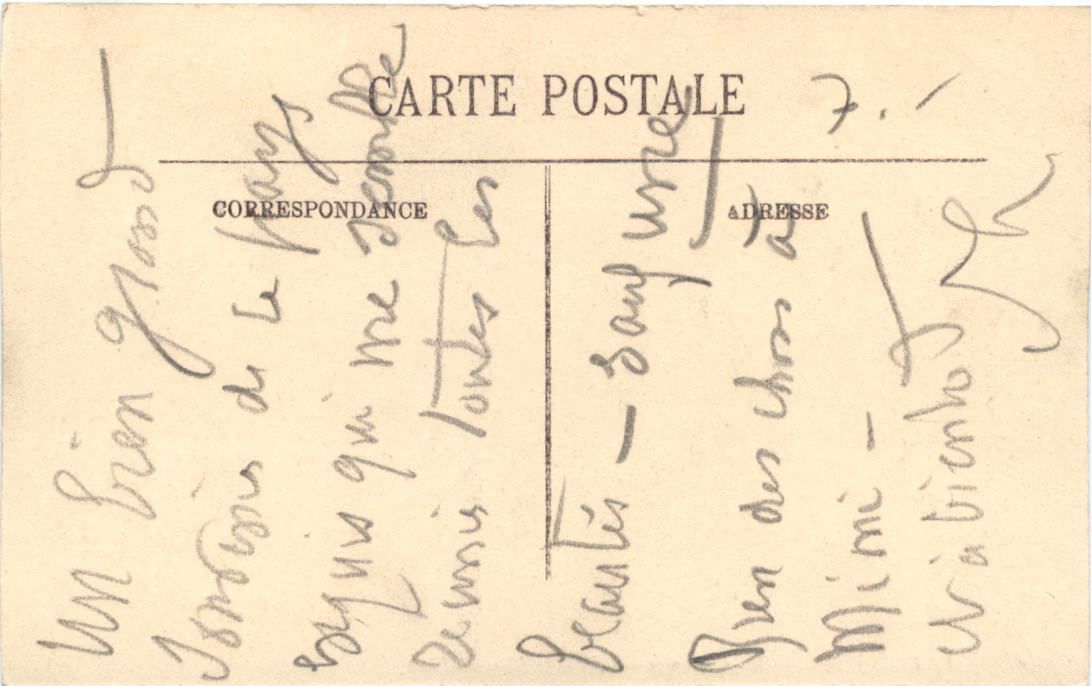 CARTE POSTALE
CORRESPONDANCE
ADRESSE
Un bien grand
Souvenir de ce pays
exquis qui me semble
réunir toutes les
beautés — sauf une
Bien des choses à
Mimi —
et à bientôt